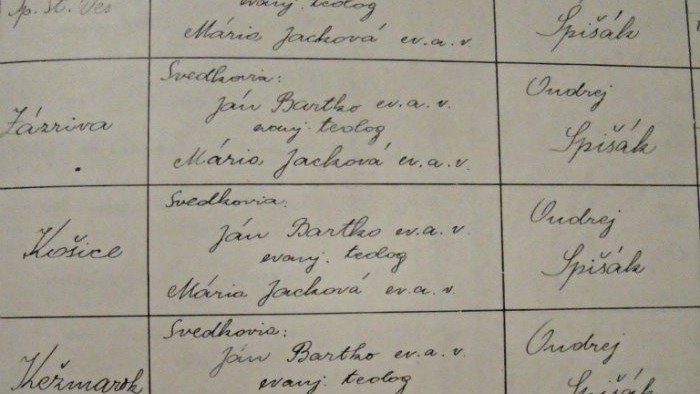 Sp. St. Ves
evanj. teolog
Mária Jacková ev. a. v.
Spišák
Zázriva
Svedkovia:
Ján Bartko ev. a. v.
evanj. teolog
Mária Jacková ev. a. v.
Ondrej
Spišák
Košice
Svedkovia:
Ján Bartko ev. a. v.
evanj. teolog
Mária Jacková ev. a. v.
Ondrej
Spišák
Kežmarok
Svedkovia:
Ján Bartko ev. a. v.
evanj. teolog
Ondrej
Spišák